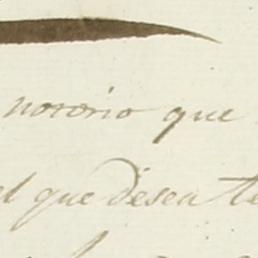 notorio que
el que desea te